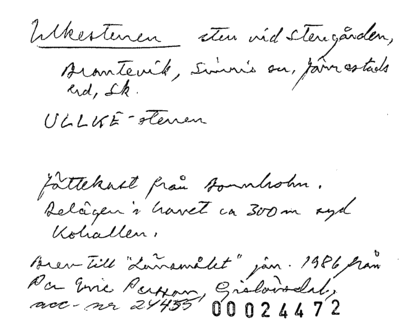 Ulkestenen sten vid Stengården,
Brantevik, Simris sn, Järrestads
hd, Sk.
ULLKE-stenen
Jättekast från Bornholm.
Belägen i havet ca 300 m syd
Kohallen.
Brev till "Länsmålet" jan. 1986 från
Per Eric Persson, Gislövsdal,
acc-nr 24455 00024472